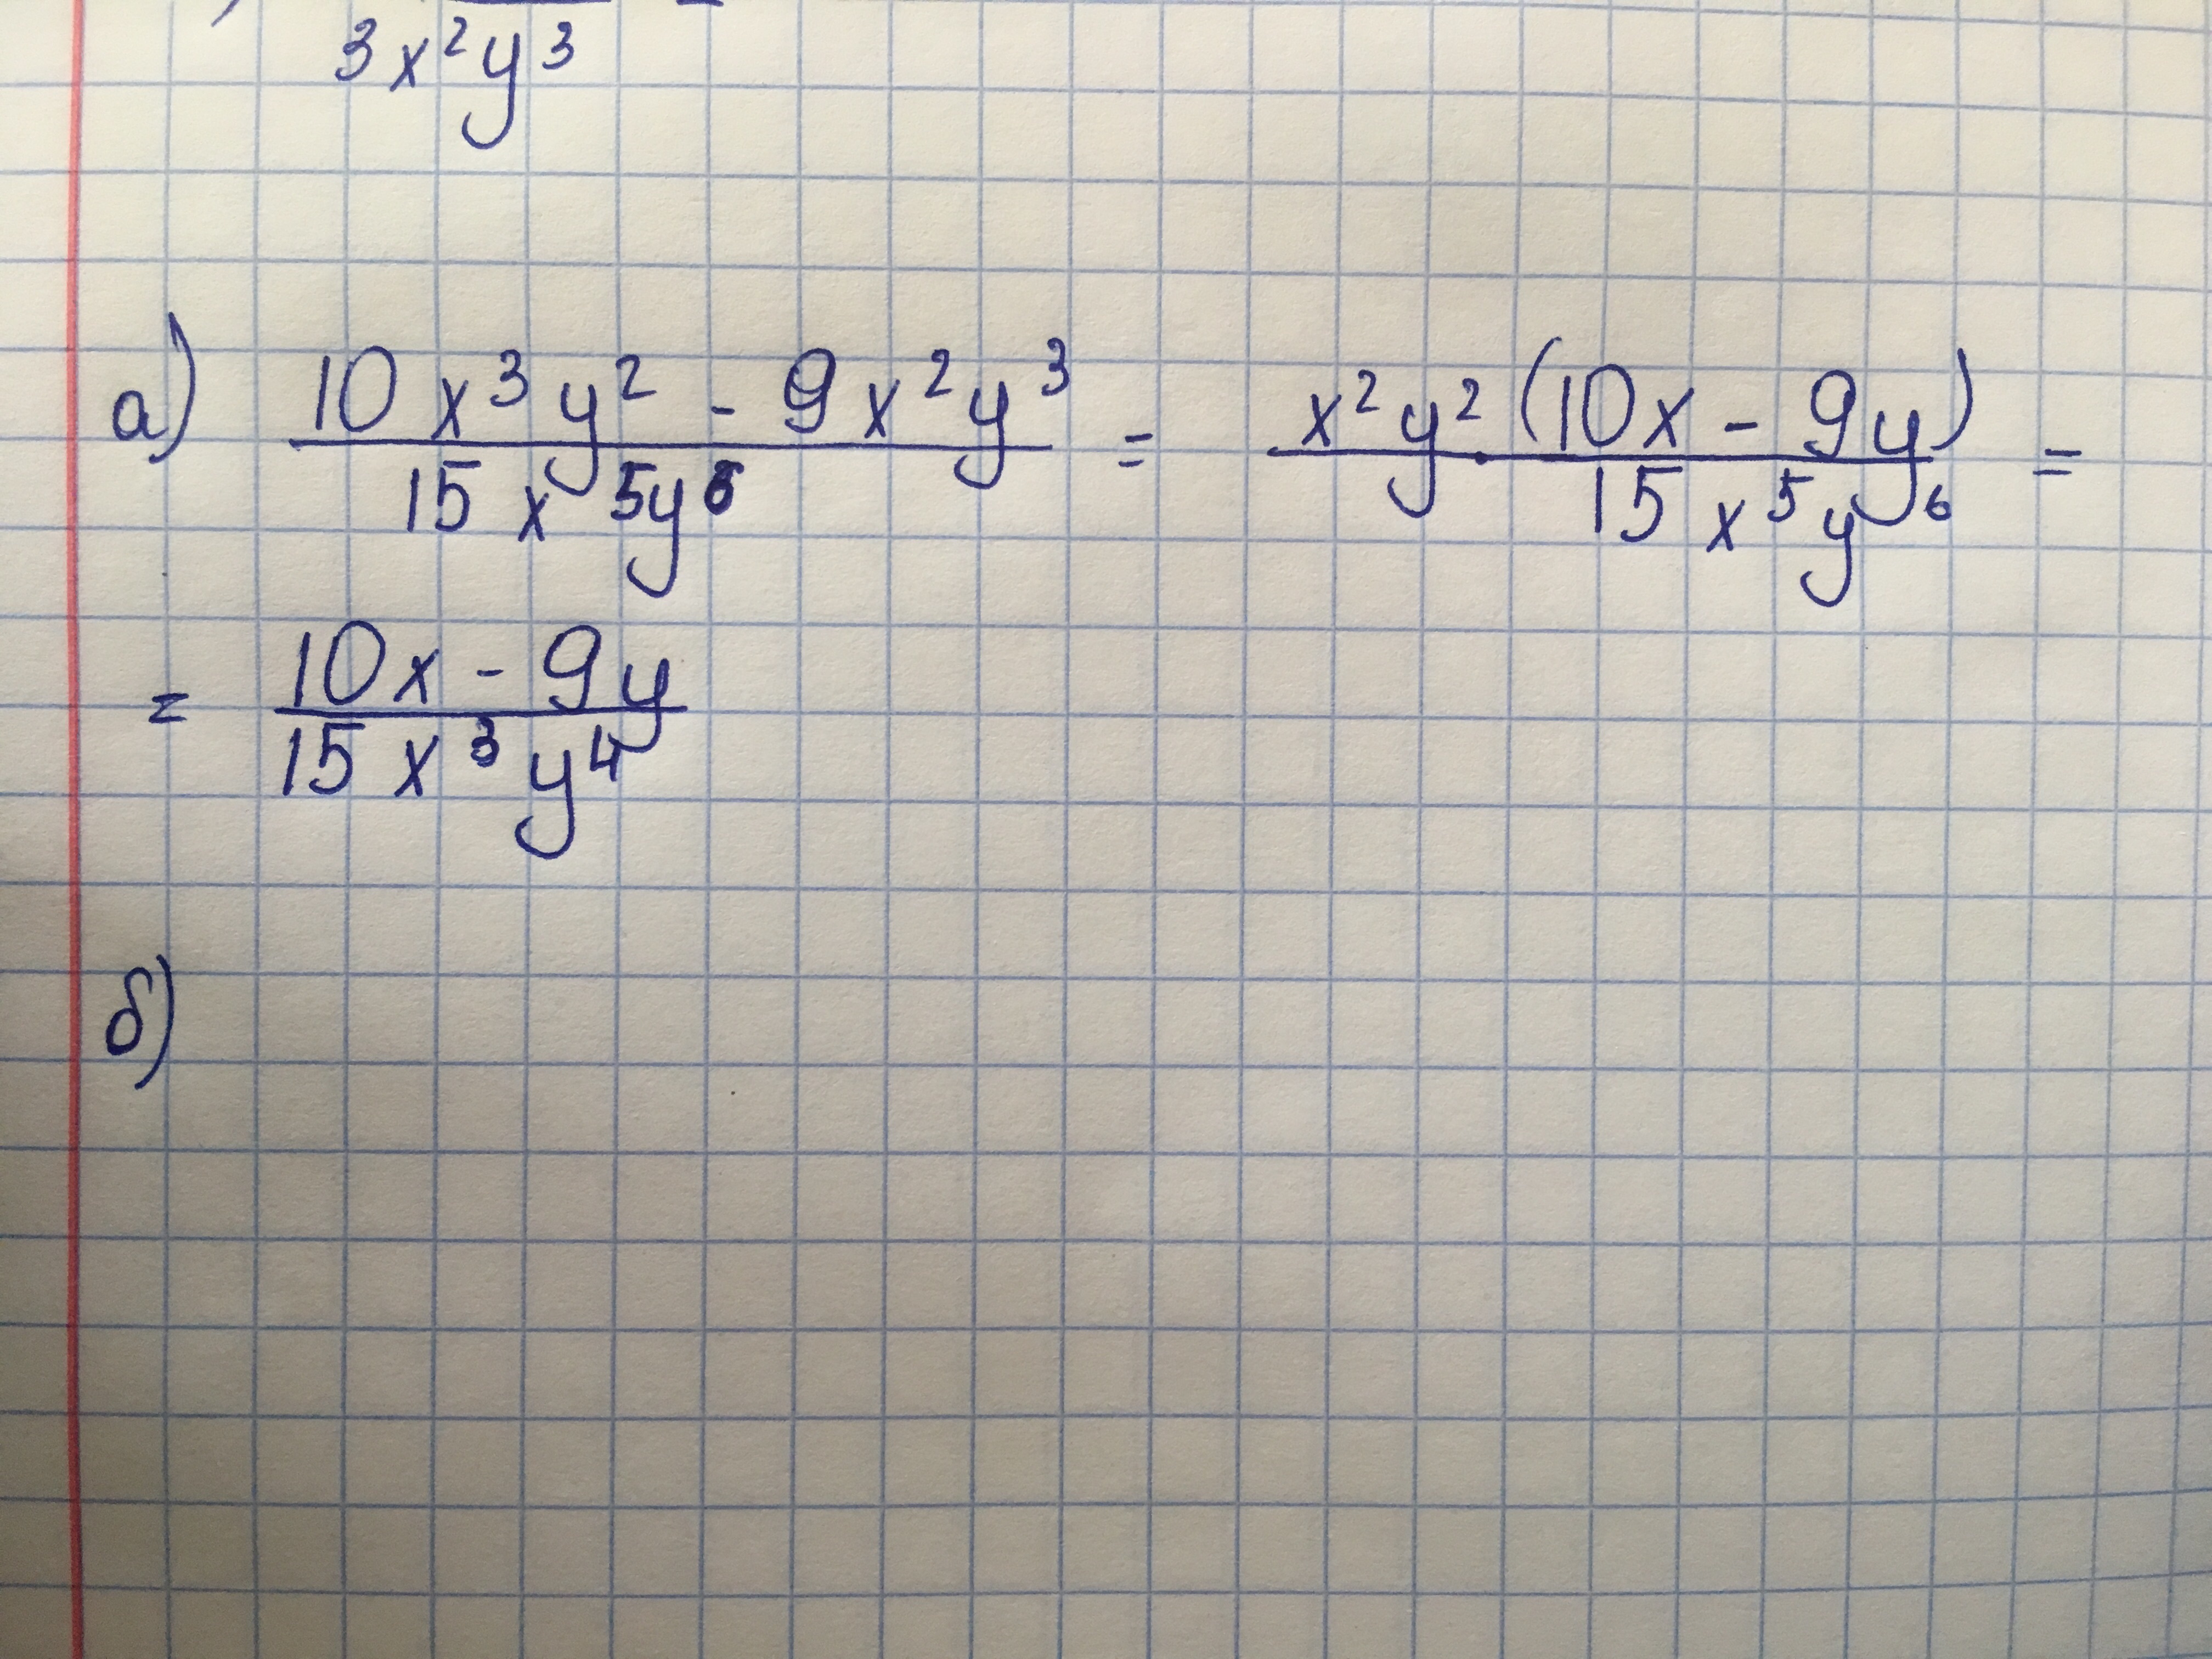 3x²y³
а) (10x³y² - 9x²y³)/(15x⁵y⁶) = (x²y²·(10x - 9y))/(15x⁵y⁶) =
= (10x - 9y)/(15x³y⁴)
б)